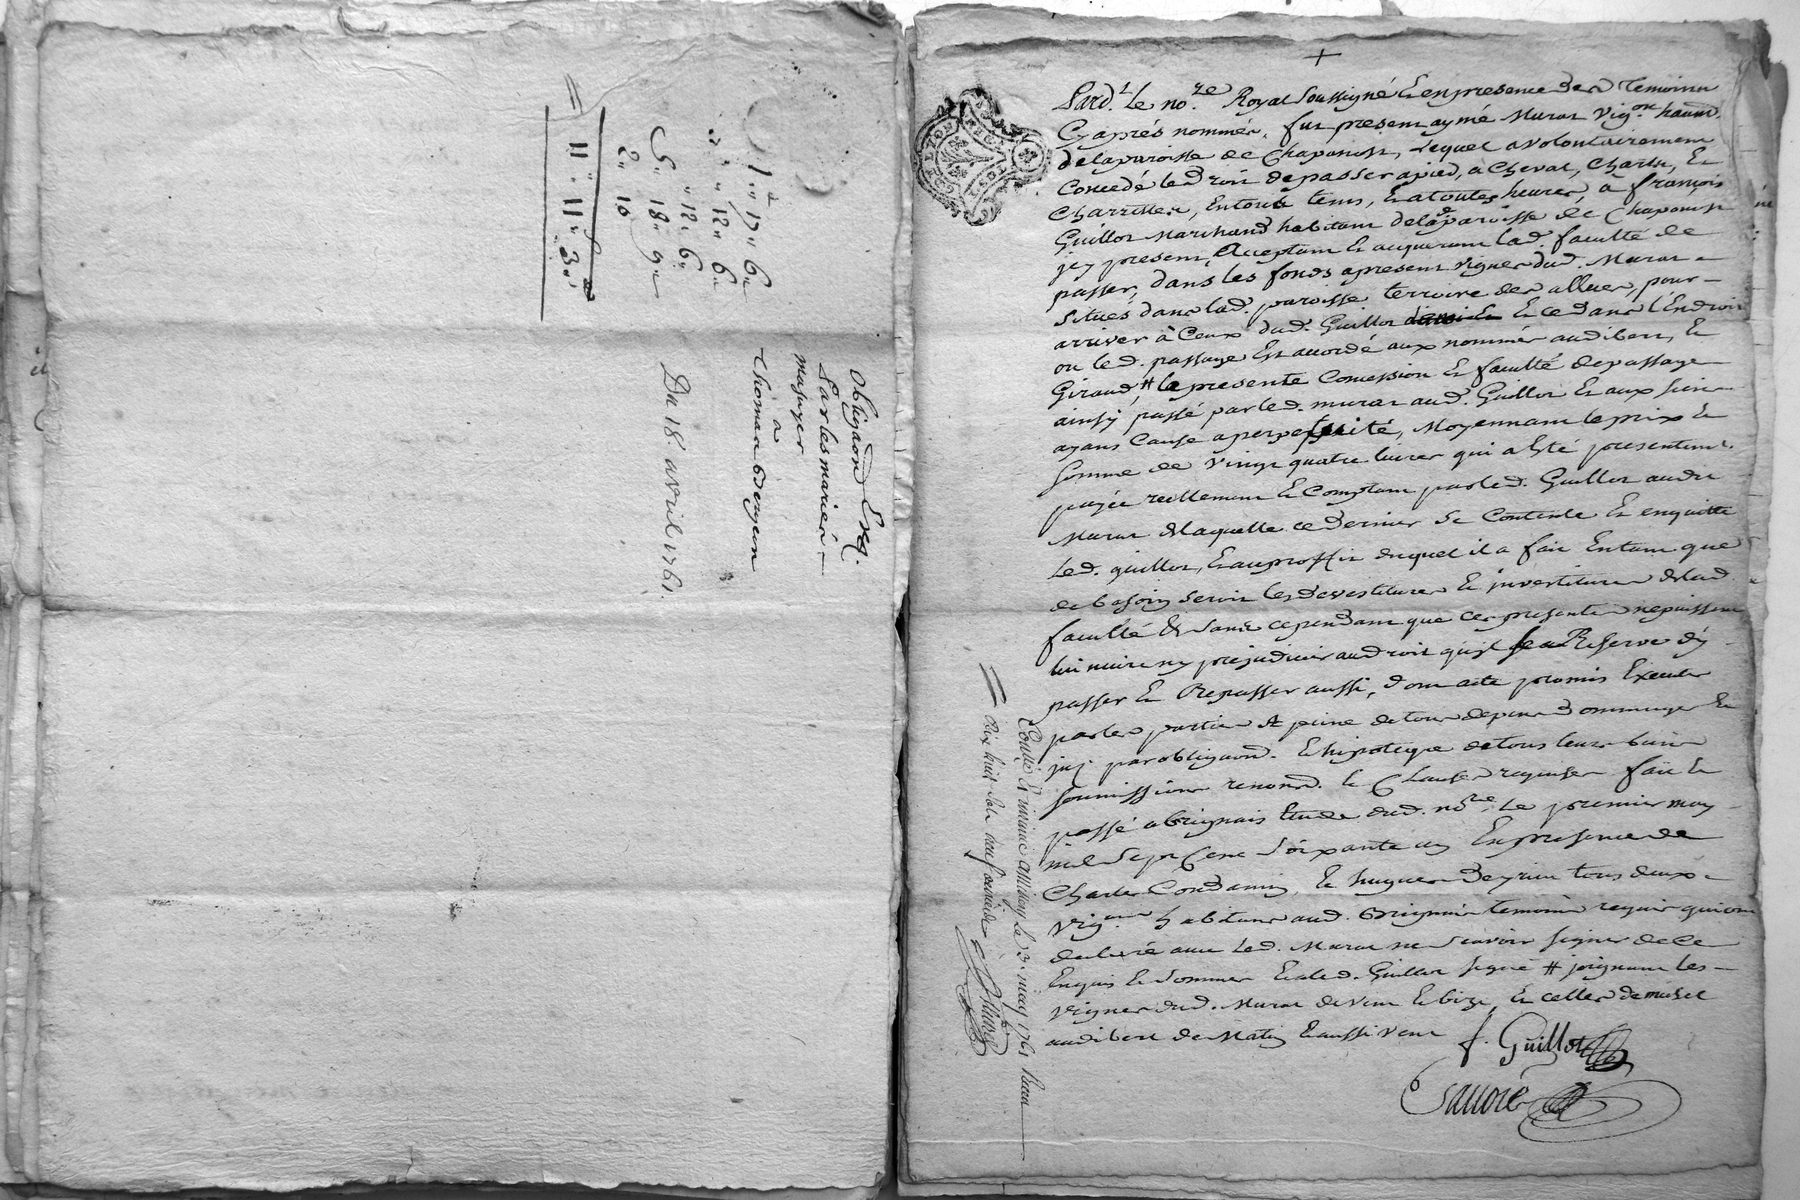 1 " 17 " 6 "
" 12 " 6 "
" 12 " 6 "
5 " 18 " 9 "
2 " 10
11 " 11 " 3 "
Obligaõn Exq.
Par les mariés
mazuyer
à
Thomas
Du 18 avril 1761.
+
Pard.t le no.re Royal soussigné & en presence des temoins
Cyaprés nommés, fut present aymé Murat vig.on habitt.
de la paroisse de Chaponost, lequel a volontairement
Concedé le droit de passer a pied, à Cheval, Chars, &
Charrettes, en tout tems, & a toutes heures, à françois
Guillot Marchand habitant de lad. paroisse de Chaponost
icy present, acceptant & acquerant lad. faculté de
passer, dans les fonds a present vignes dud. Murat
situés dans lad. paroisse terroire des alluës, pour
arriver à Ceux dud. Guillot & ce dans l'Endroit
ou led. passage est accordé aux nommés audibert, &
Giraud, # la presente Concession & faculté de passage
ainsy passé par led. murat aud. Guillot & aux siens
ayans Cause a perpetuité, Moyennant le prix &
somme de vingt quatre livres qui a Esté presentemt.
payée reellement & Comptant par led. Guillot audit
Murat de laquelle ce dernier se Contente & en quitte
led. guillot, & au proffit duquel il a fait Entant que
de besoin servir les devestitures & investitures de lad.
faculté & sans cependant que ces presentes ne puissent
lui nuire ny prejudicier au droit qu'il se Reserve d'y
passer & Repasser aussi, dont acte promis Executer
par les parties A peine de tous depens dommages &
int. par obligaõn. & hipoteque de tous leurs biens
soumissions renond. & Clauses requises fait &
passé a Brignais Etude dud. no.re le premier may
mil sept Cent soixante un En presence de
Charles Condamin, & hugues tous deux
vig.ons habitans aud. Brignais temoins requis qui ont
declaré avec led. Murat ne sçavoir signer de ce
Enquis & sommés & a led. Guillot signé # joignant les
vignes dud. Murat de vent & bize, & celles de
audibert de Matin & aussi vent
f. Guillot
Savoie
Controllé & insinué a Millery le 3. may 1761 Recu
Dix huit sols neuf deniers